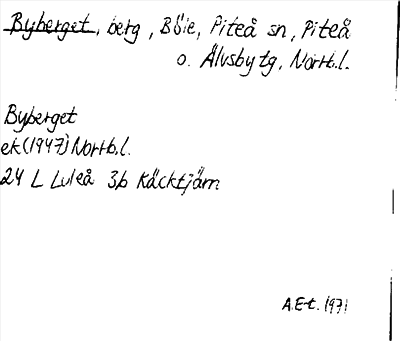 Byberget, berg, Böle, Piteå sn, Piteå
o. Älvsby tg, Norrb.l.
Byberget
ek(1947) Norrb.l.
24 L Luleå 3b Käcktjärn
A.E-t. 1971